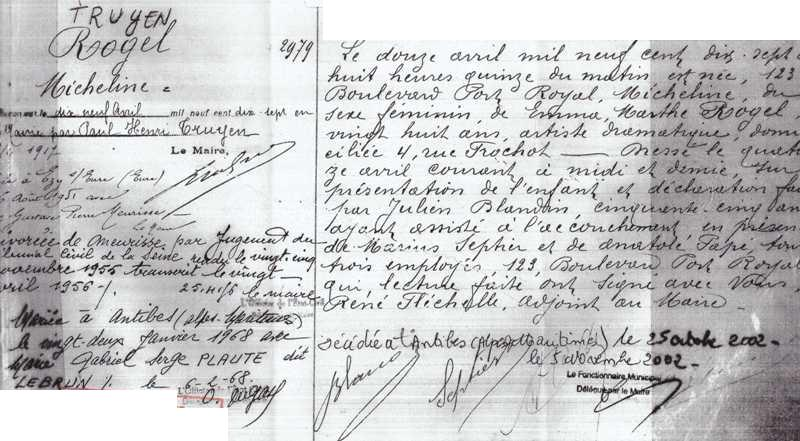 TRUYEN
Rogel
2979
Micheline =
dix neuf Avril mil neuf cent dix-sept en
Mairie par Paul Henri Truyen
1917
Le Maire,
à Ezy s/Eure (Eure)
Août 1935 avec
Gustave Pierre Meurisse
Divorcée de Meurisse par Jugement du
Tribunal civil de la Seine rendu le vingt cinq
novembre 1955 transcrit le vingt
avril 1956 -/. le maire
Mariée à Antibes (Alpes-Maritimes)
le vingt deux Janvier 1968 avec
Gabriel Serge PLAUTE dit
LEBRUN /. le 6-2-68.
Le douze avril mil neuf cent dix-sept à
huit heures quinze du matin est née, 123
Boulevard Port Royal, Micheline, du
sexe féminin, de Emma, Marthe Rogel,
vingt huit ans, artiste dramatique, domi
ciliée 4, rue Frochot — Dressé le quator
ze avril courant à midi et demie, sur
présentation de l'enfant et déclaration faite
par Julien Blandin, cinquante-cinq ans
ayant assisté à l'accouchement, en présence
de Marius Septier et de Anatole Papé, tous
trois employés, 123, Boulevard Port Royal
qui, lecture faite ont signé avec Nous,
René Fléchelle, adjoint au Maire -
Décédée à Antibes (Alpes-Maritimes) le 25 octobre 2002 -
le 5 novembre 2002 -
Le Fonctionnaire Municipal
Délégué par le Maire
Septier